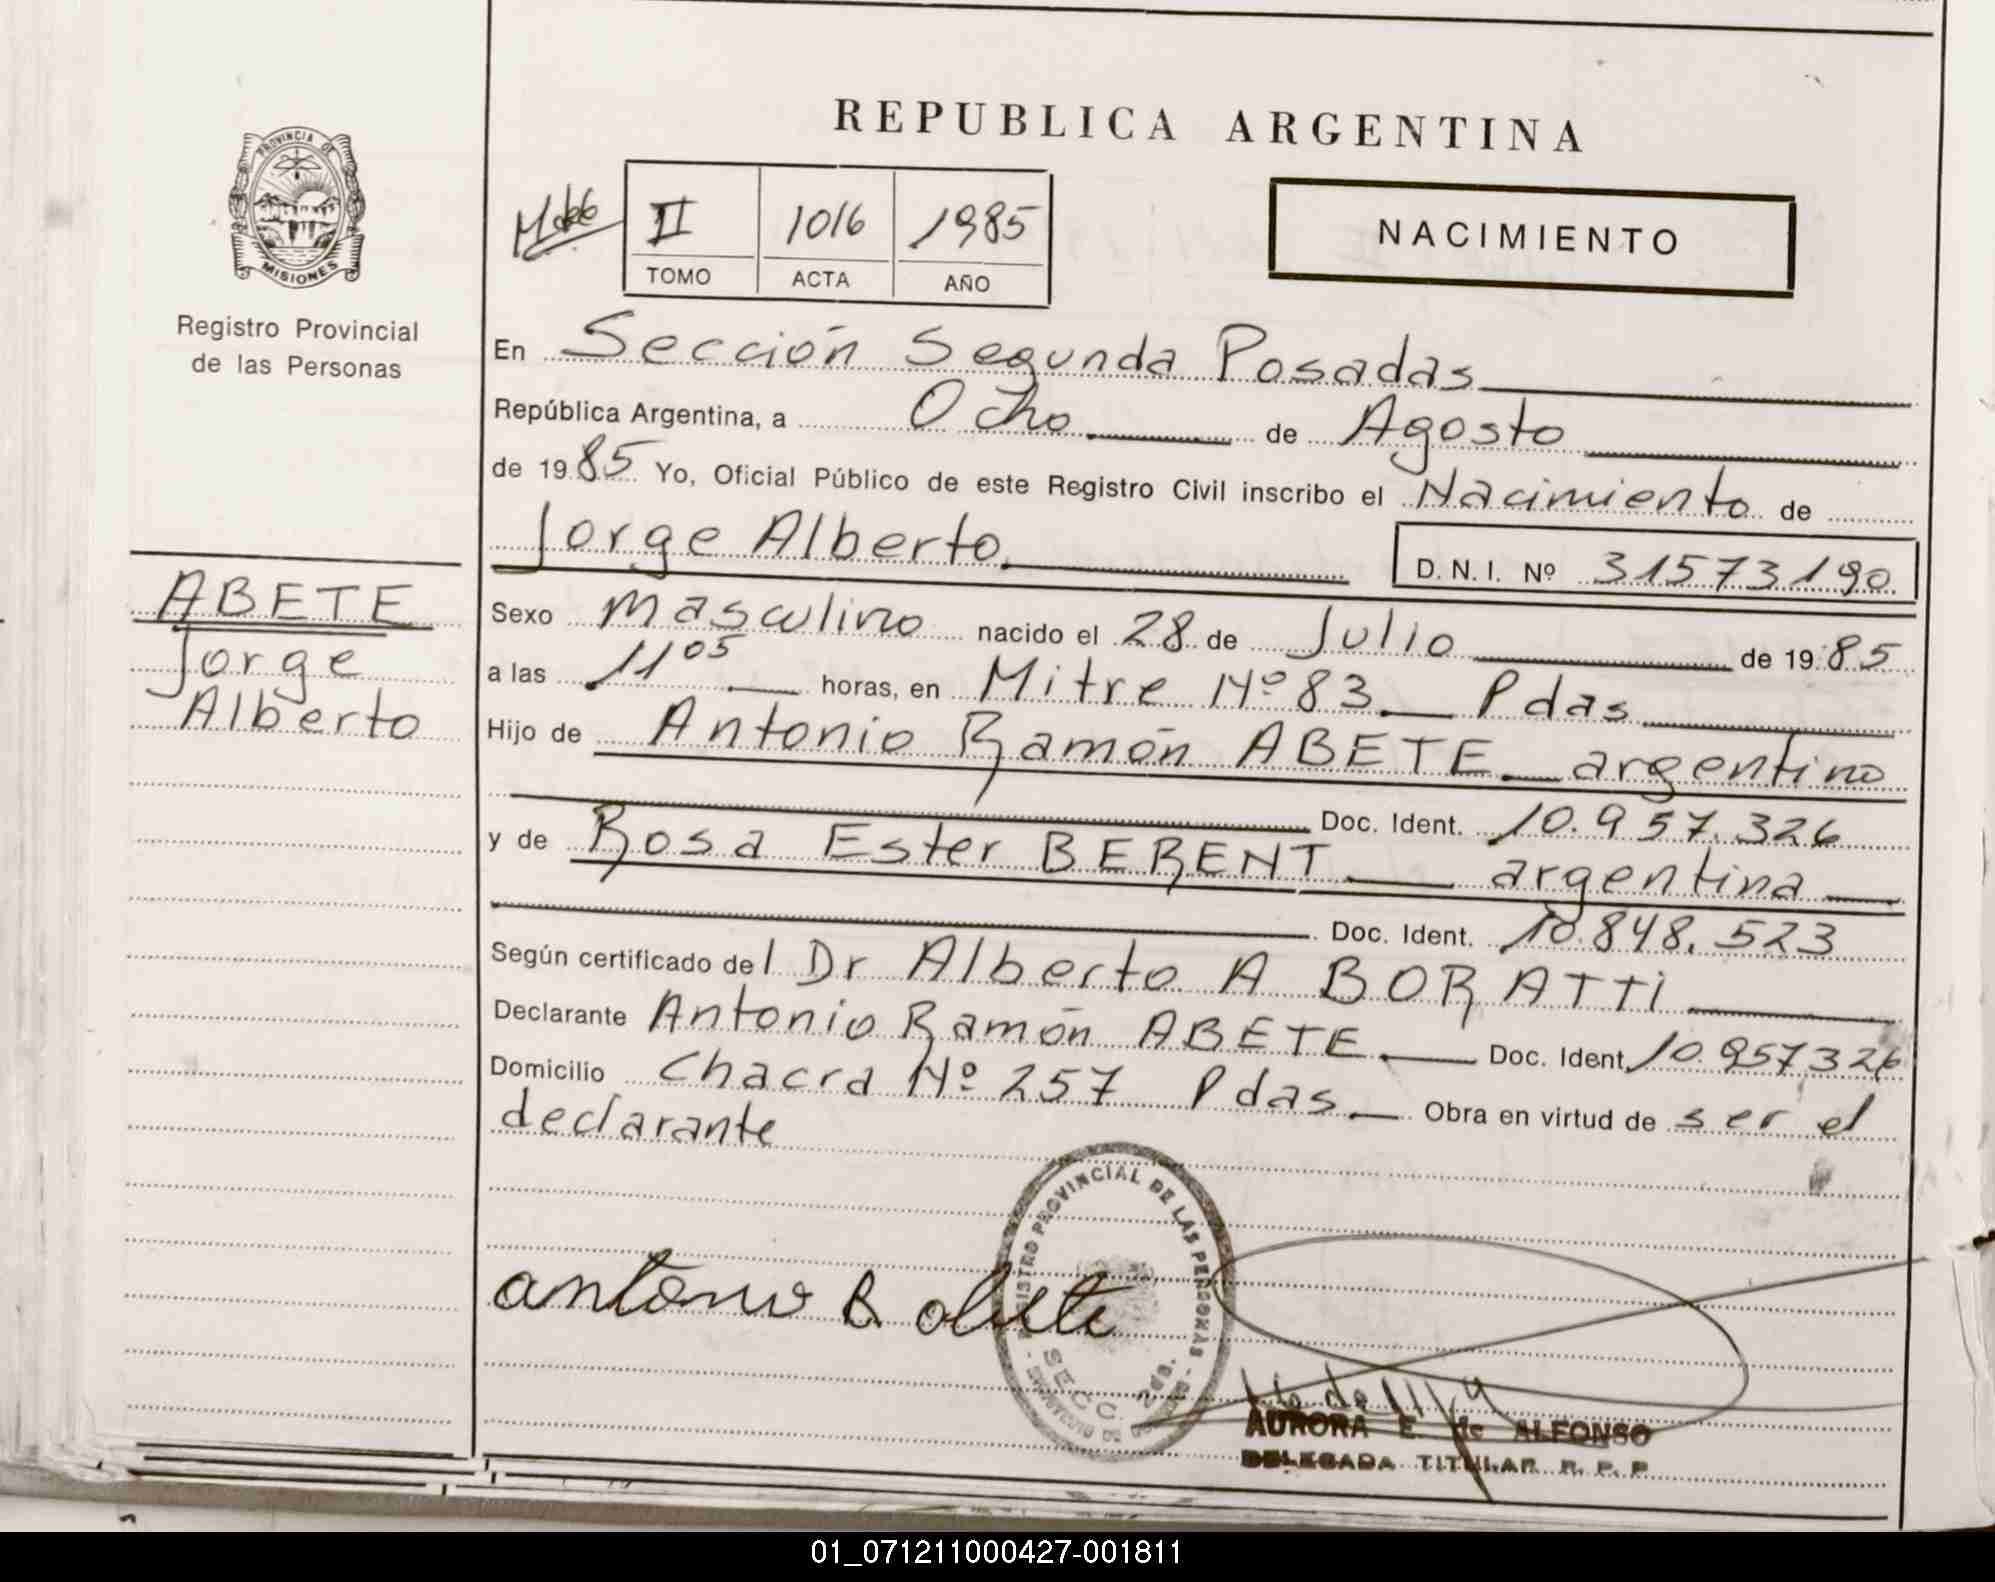 PROVINCIA DE
MISIONES
Registro Provincial
de las Personas
ABETE
Jorge
Alberto
REPUBLICA ARGENTINA
II 1016 1985
TOMO ACTA AÑO
NACIMIENTO
En Sección Segunda Posadas
República Argentina, a Ocho de Agosto
de 1985 Yo, Oficial Público de este Registro Civil inscribo el Nacimiento de
Jorge Alberto D.N.I. Nº 31573190
Sexo Masculino nacido el 28 de Julio de 1985
a las 11 05 horas, en Mitre Nº 83 Pdas
Hijo de Antonio Ramón ABETE argentino
Doc. Ident. 10.957.326
y de Rosa Ester BERENT argentina
Doc. Ident. 10.848.523
Según certificado del Dr Alberto A BORATTi
Declarante Antonio Ramón ABETE Doc. Ident. 10.957326
Domicilio Chacra Nº 257 Pdas Obra en virtud de ser el
declarante
REGISTRO PROVINCIAL DE LAS PERSONAS
SECC. 2da.
antonio R abete
AURORA E. de ALFONSO
DELEGADA TITULAR R. P. P.
01_071211000427-001811